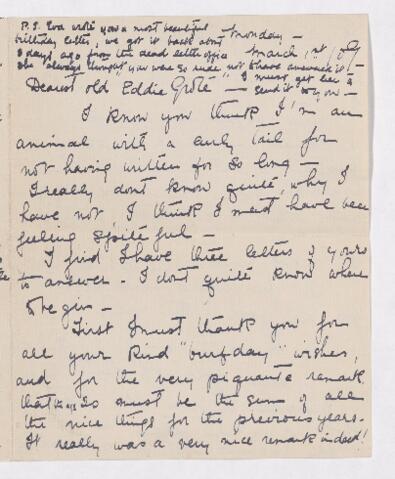 P.S. Eva wrote you a most beautiful
birthday letter, we got it back about
3 days ago from the dead letter office
She "always thought" you were so rude not to have answered it! -
I must get her to
send it to you -
Monday -
March 1st
Dearest old Eddie Grote" -
I know you think I'm an
animal with a curly tail for
not having written for so long -
I really don't know quite, why I
have not, I think I must have been
feeling spiteful -
I find I have three letters of yours
to answer - I don't quite know where
to begin -
First I must thank you for
all your kind "burfday" wishes,
and for the very piquante remark
that the age 20 must be the sum of all
the nice things for the previous years -
It really was a very nice remark indeed!